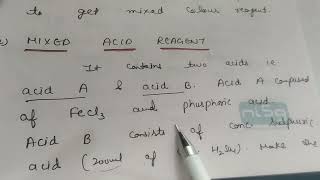 to get mixed colour reagent.
MIXED ACID REAGENT
It contains two acids i.e.
acid A & acid B. Acid A composed
of FeCl3 and phosphoric acid
Acid B consists of conc sulphuric
Acid (200ml of H2SO4). Make the